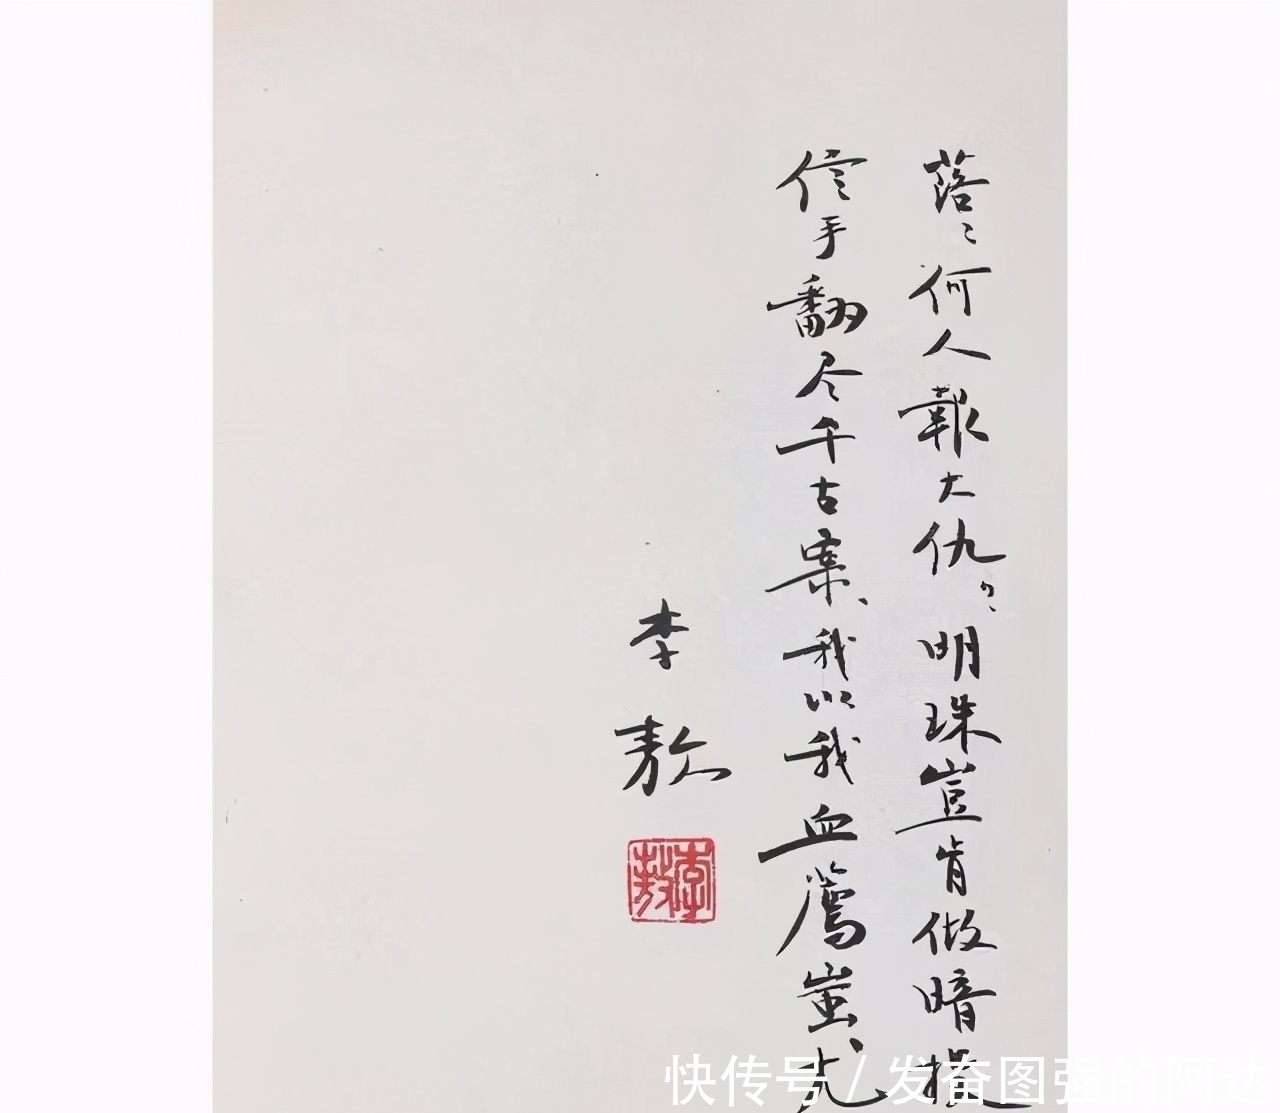 落〻何人報大仇?明珠豈肯做暗投
信手翻尽千古案、我以我血薦蚩尤
李敖
李敖
快传号 / 发奋图强的阿达